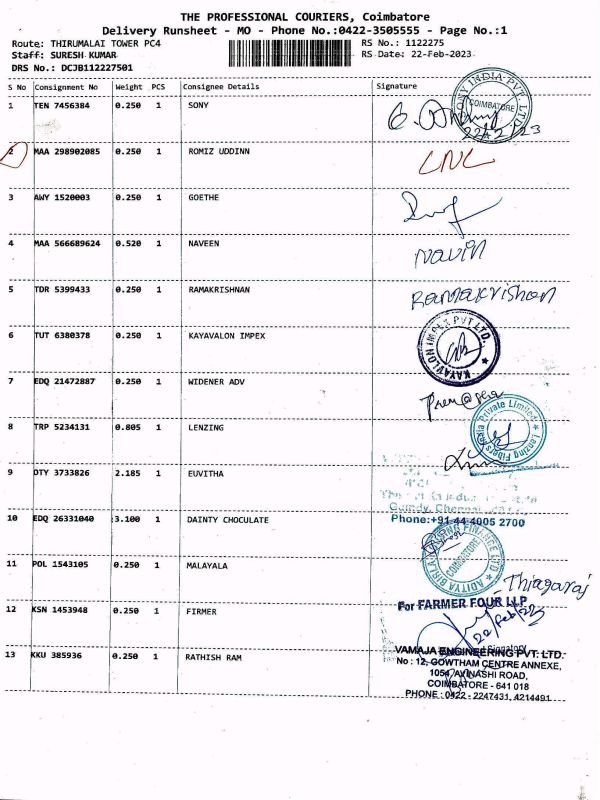 THE PROFESSIONAL COURIERS, Coimbatore
Delivery Runsheet - MO - Phone No.:0422-3505555 - Page No.:1
Route: THIRUMALAI TOWER PC4 RS No.: 1122275
Staff: SURESH KUMAR RS Date: 22-Feb-2023
DRS No.: DCJB112227501
S No Consignment No Weight PCS Consignee Details Signature
1 TEN 7456384 0.250 1 SONY
SONY INDIA PVT. LTD. COIMBATORE
2 MAA 298902085 0.250 1 ROMIZ UDDINN
3 AWY 1520003 0.250 1 GOETHE
4 MAA 566689624 0.520 1 NAVEEN Navin
5 TDR 5399433 0.250 1 RAMAKRISHNAN Ramakrishnan
6 TUT 6380378 0.250 1 KAYAVALON IMPEX
KAYAVLON IMPLX PVT LTD.
7 EDQ 21472887 0.250 1 WIDENER ADV
8 TRP 5234131 0.805 1 LENZING
Lenzing Fibers India Private Limited
9 DTY 3733826 2.185 1 EUVITHA
Guindy, Chennai
10 EDQ 26331040 3.100 1 DAINTY CHOCULATE
Phone:+91-44-4005 2700
ADITYA BIRLA FINANCE LTD COIMBATORE
11 POL 1543105 0.250 1 MALAYALA Thiagaraj
12 KSN 1453948 0.250 1 FIRMER
For FARMER FOUR LLP
22/Feb/23
13 KKU 385936 0.250 1 RATHISH RAM
VAMAJA ENGINEERING PVT. LTD.
No : 12, GOWTHAM CENTRE ANNEXE,
1054, AVINASHI ROAD,
COIMBATORE - 641 018
PHONE : 0422 - 2247431, 4214491